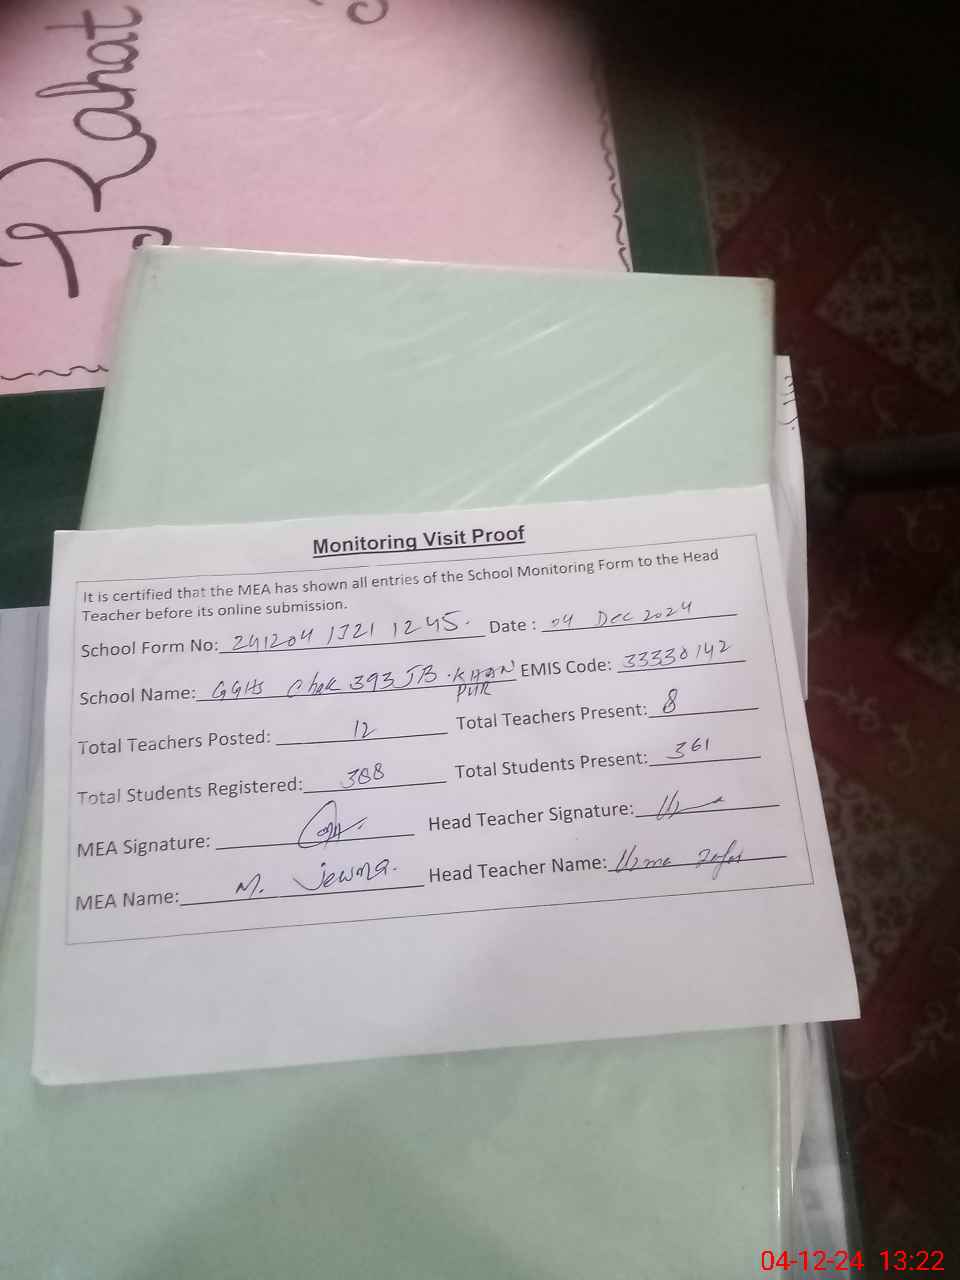 Rahat
Monitoring Visit Proof
It is certified that the MEA has shown all entries of the School Monitoring Form to the Head
Teacher before its online submission.
School Form No: 241204 1321 1245. Date : 04 Dec 2024
School Name: GGHS Chak 393 JB .KHAN PUR EMIS Code: 33330142
Total Teachers Posted: 12 Total Teachers Present: 8
Total Students Registered: 388 Total Students Present: 361
MEA Signature: Head Teacher Signature:
MEA Name: M. Head Teacher Name:
04-12-24 13:22